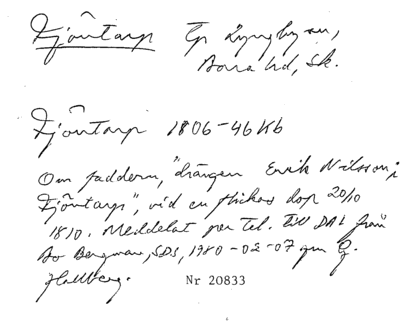 Fjöntarp Gp Lyngby sn,
Bara hd, Sk.
Fjöntarp 1806-46 Kb
Om faddern, "drängen Erik Nilsson i
Fjöntarp", vid en flickas dop 20/10
1810. Meddelat per tel. till DAL från
Bo Bergman, SDS, 1980-02-07 gm G.
Hallberg.
Nr 20833